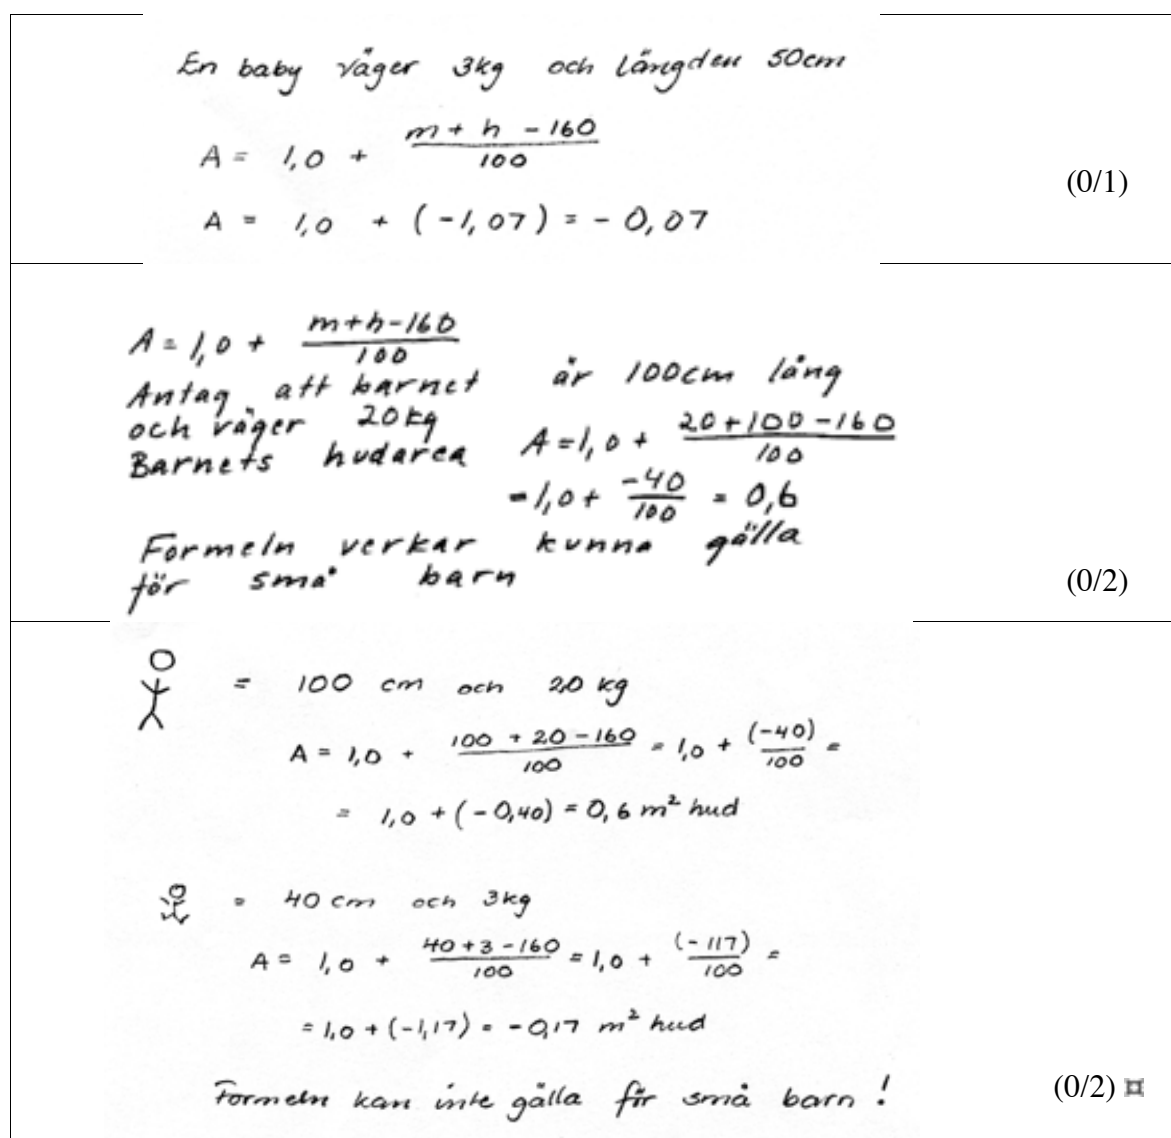 En baby väger 3kg och längden 50cm
A = 1,0 + (m + h - 160)/100
(0/1)
A = 1,0 + (-1,07) = - 0,07
A = 1,0 + (m+h-160)/100
Antag att barnet är 100cm lång
och väger 20kg
Barnets hudarea A = 1,0 + (20+100-160)/100
= 1,0 + -40/100 = 0,6
Formeln verkar kunna gälla
för små barn
(0/2)
= 100 cm och 20 kg
A = 1,0 + (100 + 20 - 160)/100 = 1,0 + (-40)/100 =
= 1,0 + (-0,40) = 0,6 m² hud
= 40 cm och 3kg
A = 1,0 + (40+3-160)/100 = 1,0 + (-117)/100 =
= 1,0 + (-1,17) = -0,17 m² hud
Formeln kan inte gälla för små barn !
(0/2) ¤